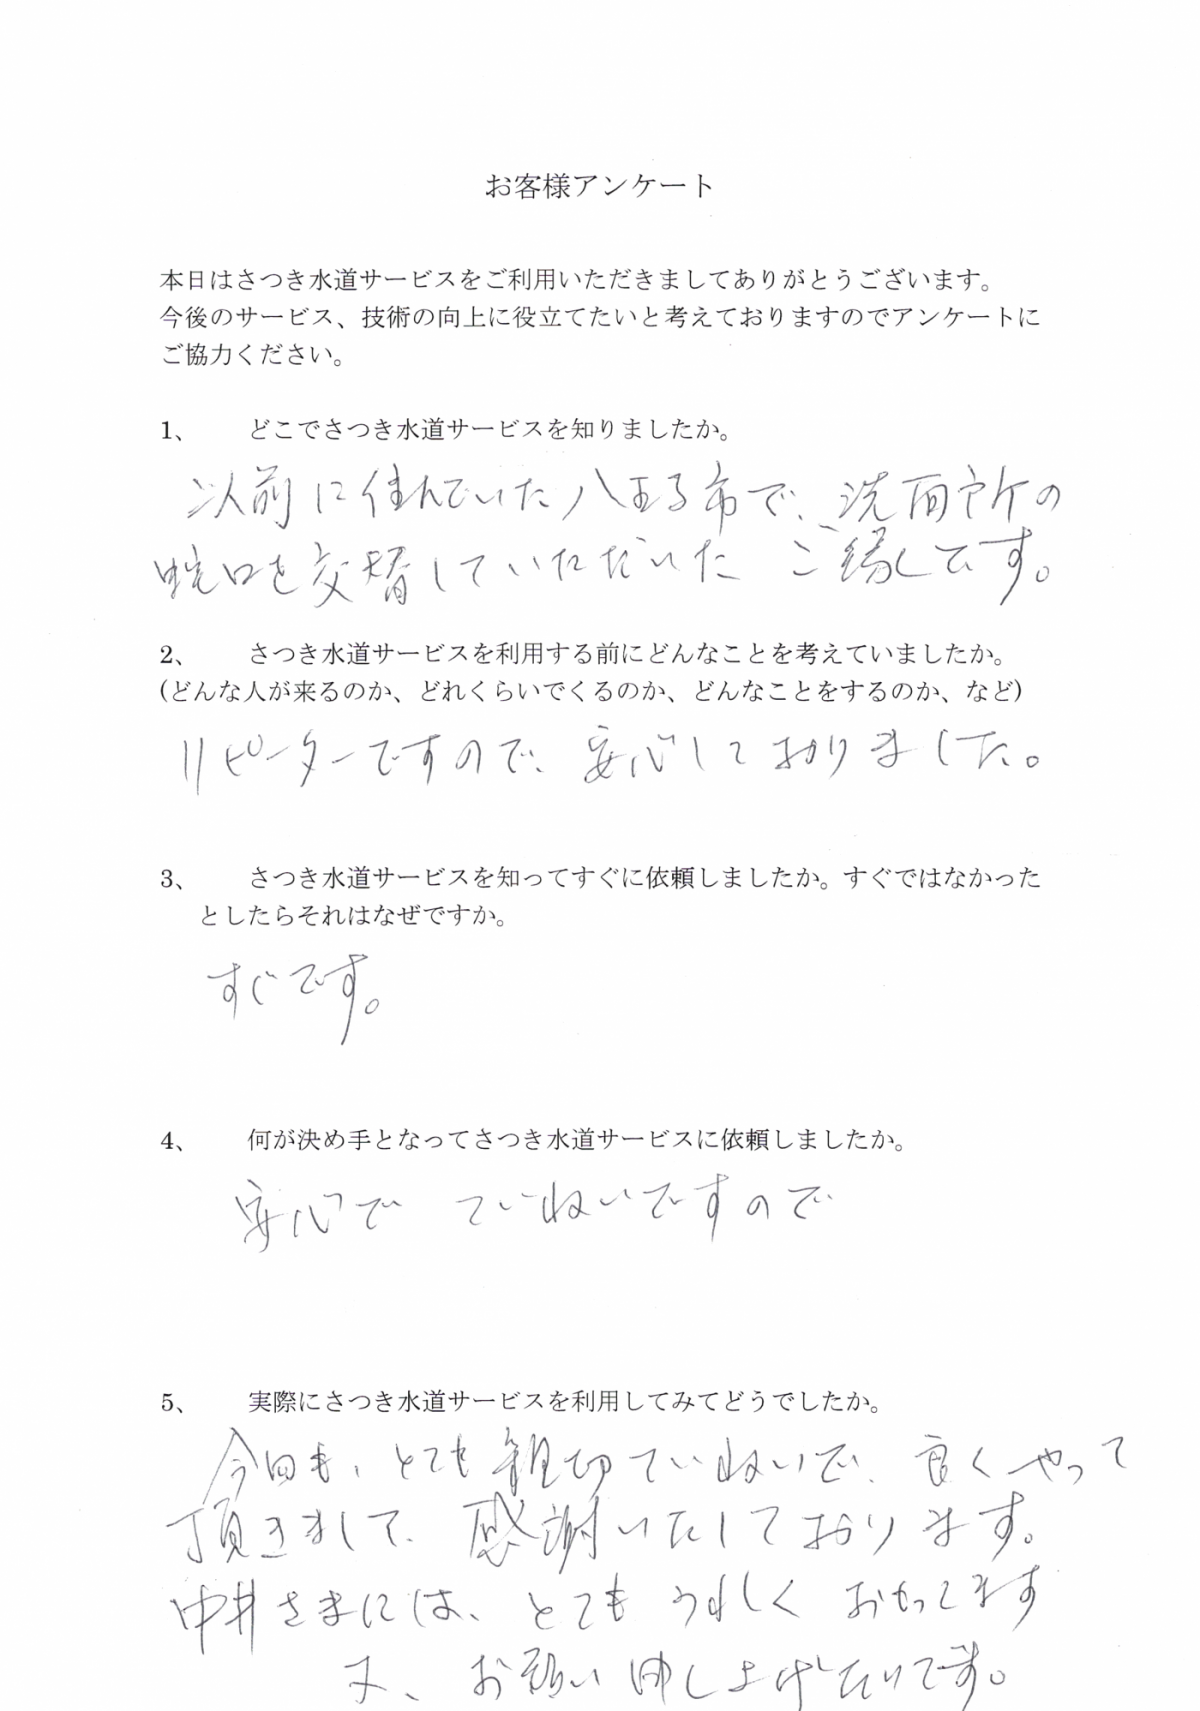 お客様アンケート
本日はさつき水道サービスをご利用いただきましてありがとうございます。
今後のサービス、技術の向上に役立てたいと考えておりますのでアンケートに
ご協力ください。
1、 どこでさつき水道サービスを知りましたか。
以前に住んでいた八王子市で、洗面所の
蛇口を交替していただいた ご縁です。
2、 さつき水道サービスを利用する前にどんなことを考えていましたか。
(どんな人が来るのか、どれくらいでくるのか、どんなことをするのか、など)
リピーターですので、安心しておりました。
3、 さつき水道サービスを知ってすぐに依頼しましたか。すぐではなかった
としたらそれはなぜですか。
すぐです。
4、 何が決め手となってさつき水道サービスに依頼しましたか。
安心で ていねいですので
5、 実際にさつき水道サービスを利用してみてどうでしたか。
今回も、とても親切ていねいで、良くやって
頂きまして、感謝いたしております。
中井さまには、とてもうれしく おもってます
又、お願い申し上げたいです。